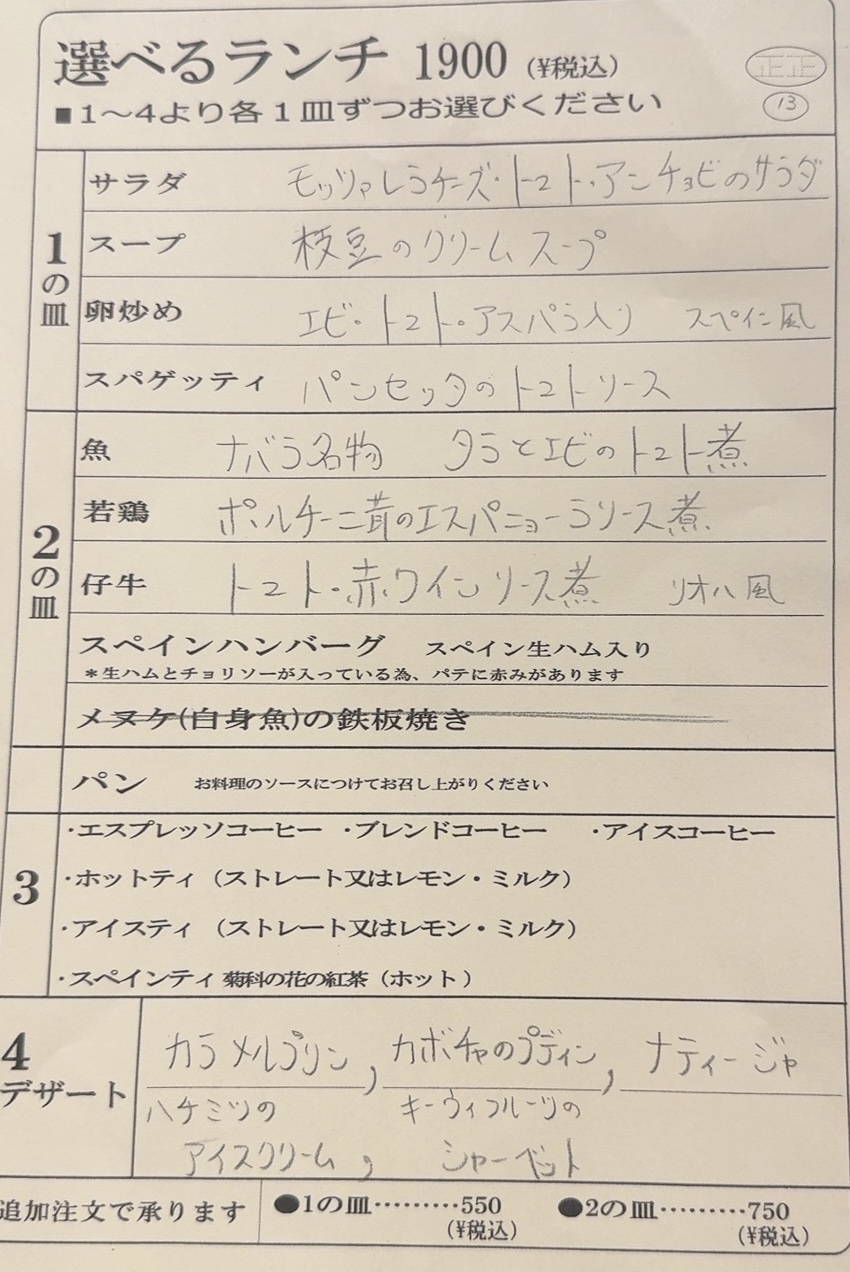 選べるランチ 1900 (¥税込)
正正
13
■1～4より各1皿ずつお選びください
1の皿
サラダ モッツァレラチーズ・トマト・アンチョビのサラダ
スープ 枝豆のクリームスープ
卵炒め エビ・トマト・アスパラ入り スペイン風
スパゲッティ パンセッタのトマトソース
2の皿
魚 ナバラ名物 タラとエビのトマト煮
若鶏 ポルチーニ茸のエスパニョーラソース煮
仔牛 トマト・赤ワインソース煮 リオハ風
スペインハンバーグ スペイン生ハム入り
＊生ハムとチョリソーが入っている為、パテに赤みがあります
メヌケ(白身魚)の鉄板焼き
パン お料理のソースにつけてお召し上がりください
3
・エスプレッソコーヒー ・ブレンドコーヒー ・アイスコーヒー
・ホットティ（ストレート又はレモン・ミルク）
・アイスティ（ストレート又はレモン・ミルク）
・スペインティ 菊科の花の紅茶（ホット）
4
デザート
カラメルプリン, カボチャのプディン, ナティージャ
ハチミツの キーウィフルーツの
アイスクリーム, シャーベット
追加注文で承ります ●1の皿………550 ●2の皿………750
(¥税込) (¥税込)